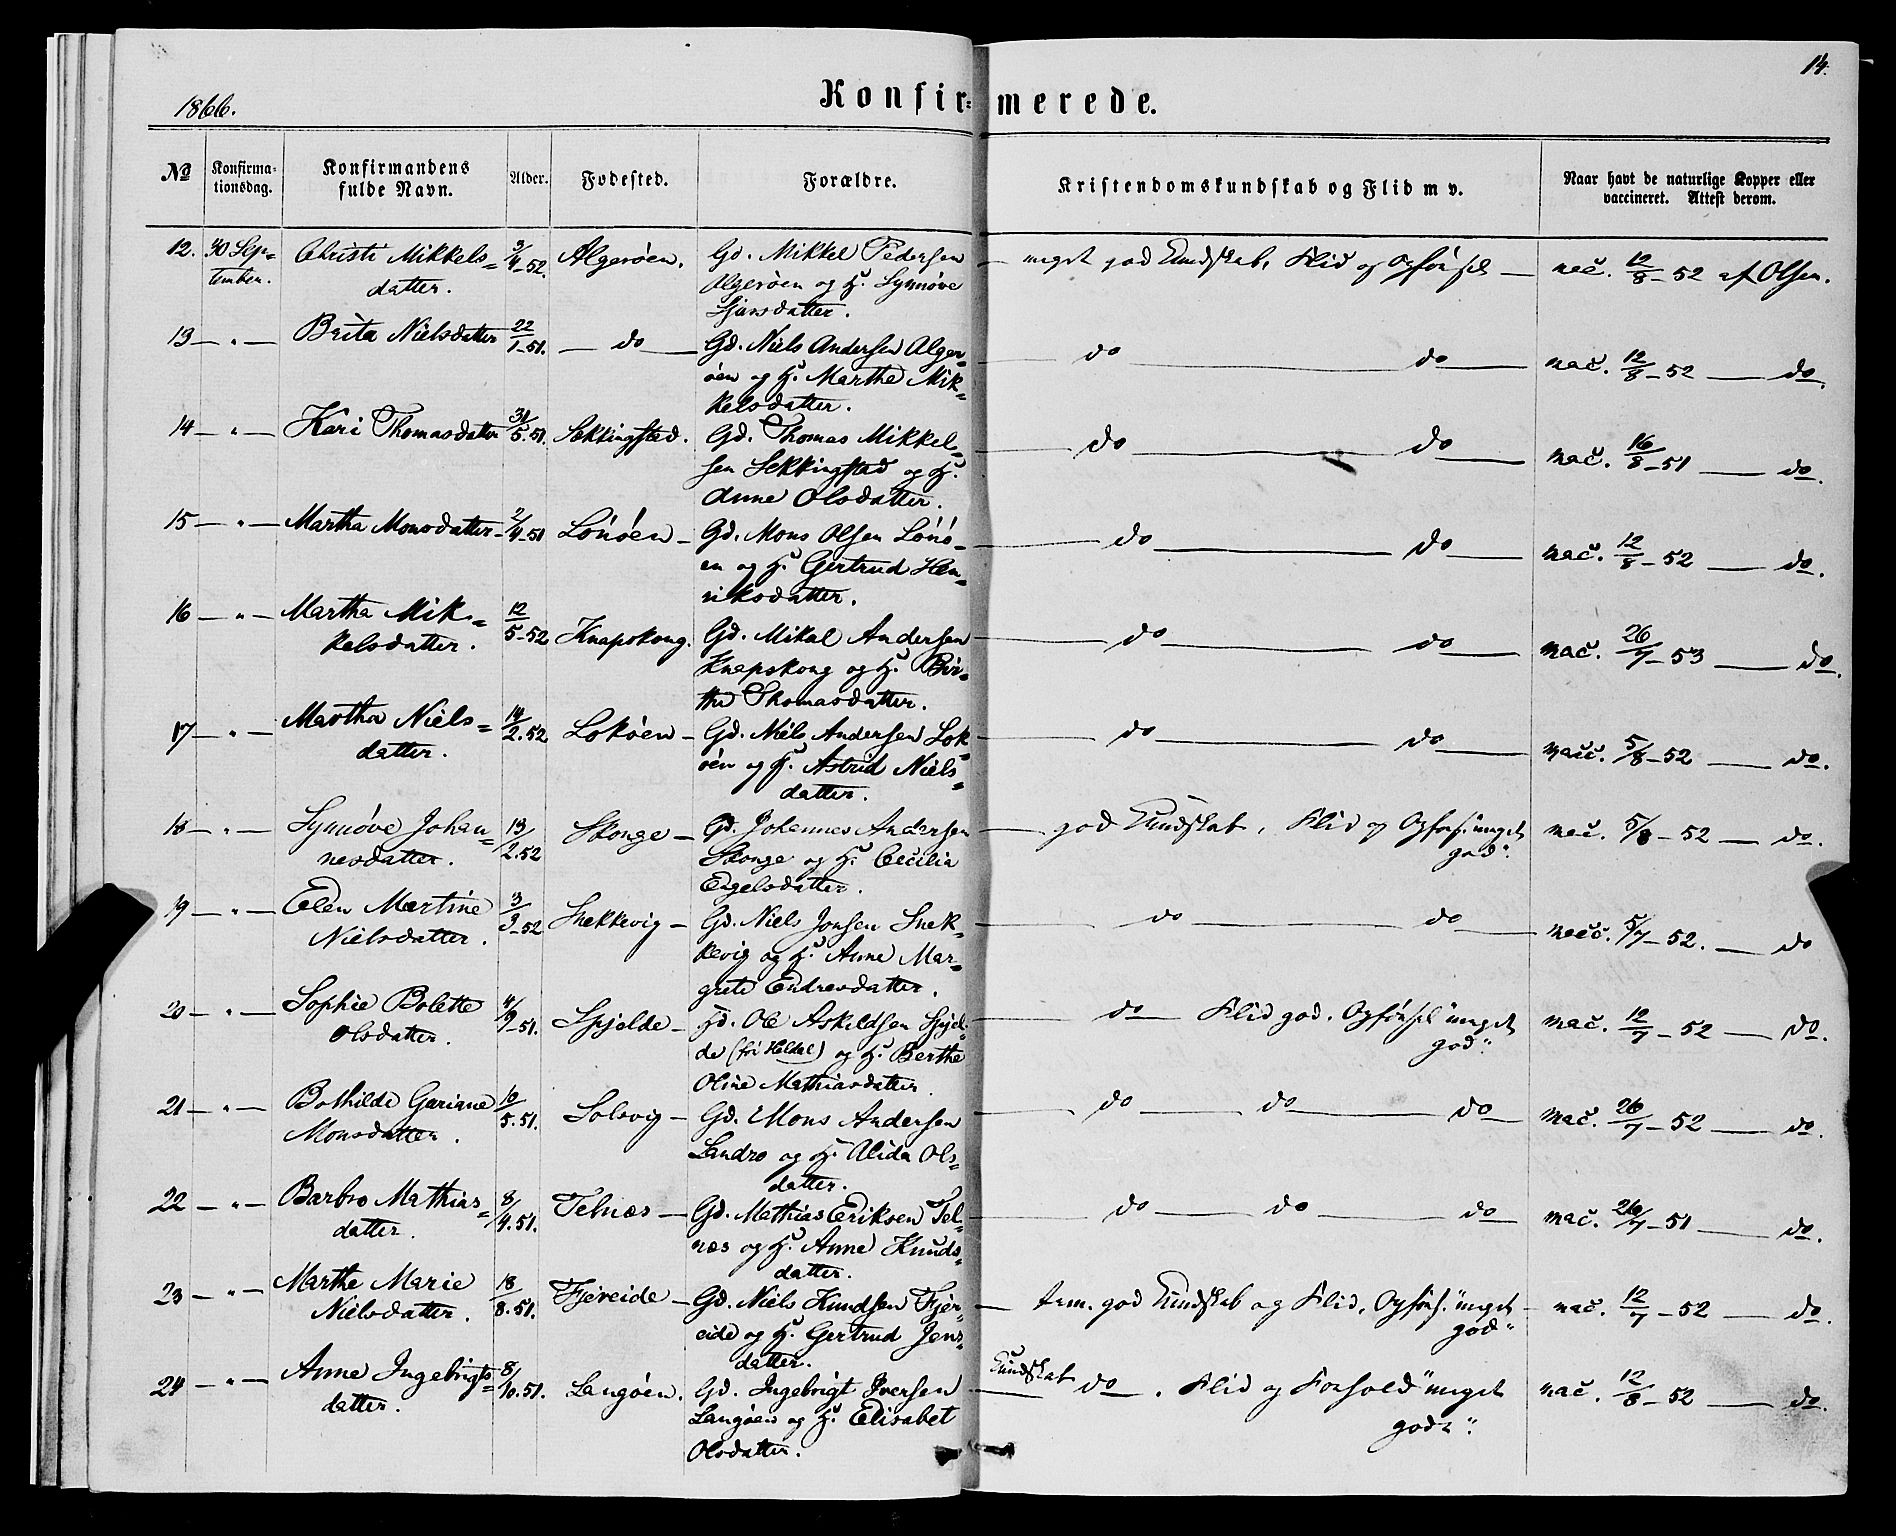 1866.
Konfirmerede.
14.
No
Konfirmationsdag.
Konfirmandens fulde Navn.
Alder.
Fødested.
Forældre.
Kristendomskundskab og Flid m v.
Naar havt de naturlige Kopper eller vaccineret. Attest derom.
12. 30 Sep= Christi Mikkels= 9/4-52. Algerøen. Gd. Mikkel Pedersen — meget god Kundskab, Flid og Opførsel — vac. 12/8-52 af Olsen.
tember. datter. Algerøen og H. Synnøve
Sjursdatter.
13 — " — Brita Nielsdatter 22/1-51. — do — Gd. Niels Andersen Alger= — do — do — vac. 12/8-52 — do.
øen og H. Marthe Mik=
kelsdatter.
14 — " — Kari Thomasdatter 31/5.51. Sekkingsted. Gd. Thomas Mikkel= — do — do — vac. 16/8-51 — do.
sen Sekkingstad og H.
Anne Olsdatter.
15 — " — Martha Monsdatter - 2/4-51 Lønøen — Gd. Mons Olsen Lønø= — do — do — vac. 12/8-52 — do.
en og H. Gertrud Hen=
riksdatter.
16 — " — Martha Mik= 12/5-52 Knapskong. Gd. Mikal Andersen — do — do — vac. 26/7-53 — do.
kelsdatter. Knapskong og H. Bir=
the Thomasdatter.
17 — " — Martha Niels= 14/2.52 Lokøen — Gd. Niels Andersen Lok= — do — do — vacc. 5/8-52 — do.
datter. øen og H. Astrid Niels=
datter.
18 — " — Synnøve Johan= 13/2.52 Skonge — Gd. Johannes Andersen — god Kundskab, Flid og Opførs. "meget vac. 5/8-52 — do.
nesdatter. Skonge og H. Cecilia god".
Engelsdatter.
19 — " — Elen Martine 3/3-52 Snekkevig — Gd. Niels Jonsen Snek= — do — do — vacc. 5/7-52. — do
Nielsdatter. kevig og H. Anne Mar=
grete Endresdatter.
20 — " — Sophie Bolette 4/9-51. Spjelde — Gd. Ole Askildsen Spjel= — do — Flid god. Opførsel "meget vac. 12/7-52 — do.
Olsdatter. de (fri Heldal) og H. Berthe god".
Oline Mathiasdatter.
21 — " — Bothilde Gæriane 10/5.51. Solsvig — Gd. Mons Andersen — do — do — do vac. 26/7-52 — do.
Monsdatter. Landro og H. Alida Ols=
datter.
22 — " — Barbro Mathias= 8/4.51. Telnæs — Gd. Mathias Eriksen Tel= — do — do — do vac. 26/7-51 — do.
datter. næs og H. Anne Knuds=
datter.
23 — " — Marthe Marie 18/8.51. Fjereide — Gd. Niels Knudsen Fjer= — tem. god Kundskab og Flid, Opførs. "meget vac. 12/7-52 — do.
Nielsdatter. eide og H. Gertrud Jens= god"
datter.
24 — " — Anne Ingebrigts= 8/10.51. Langøen. Gd. Ingebrigt Iversen Kundskab do. Flid og Forhold "meget vac. 12/8-52 — do.
datter. Langøen og H. Elisabet godt".
Olsdatter.